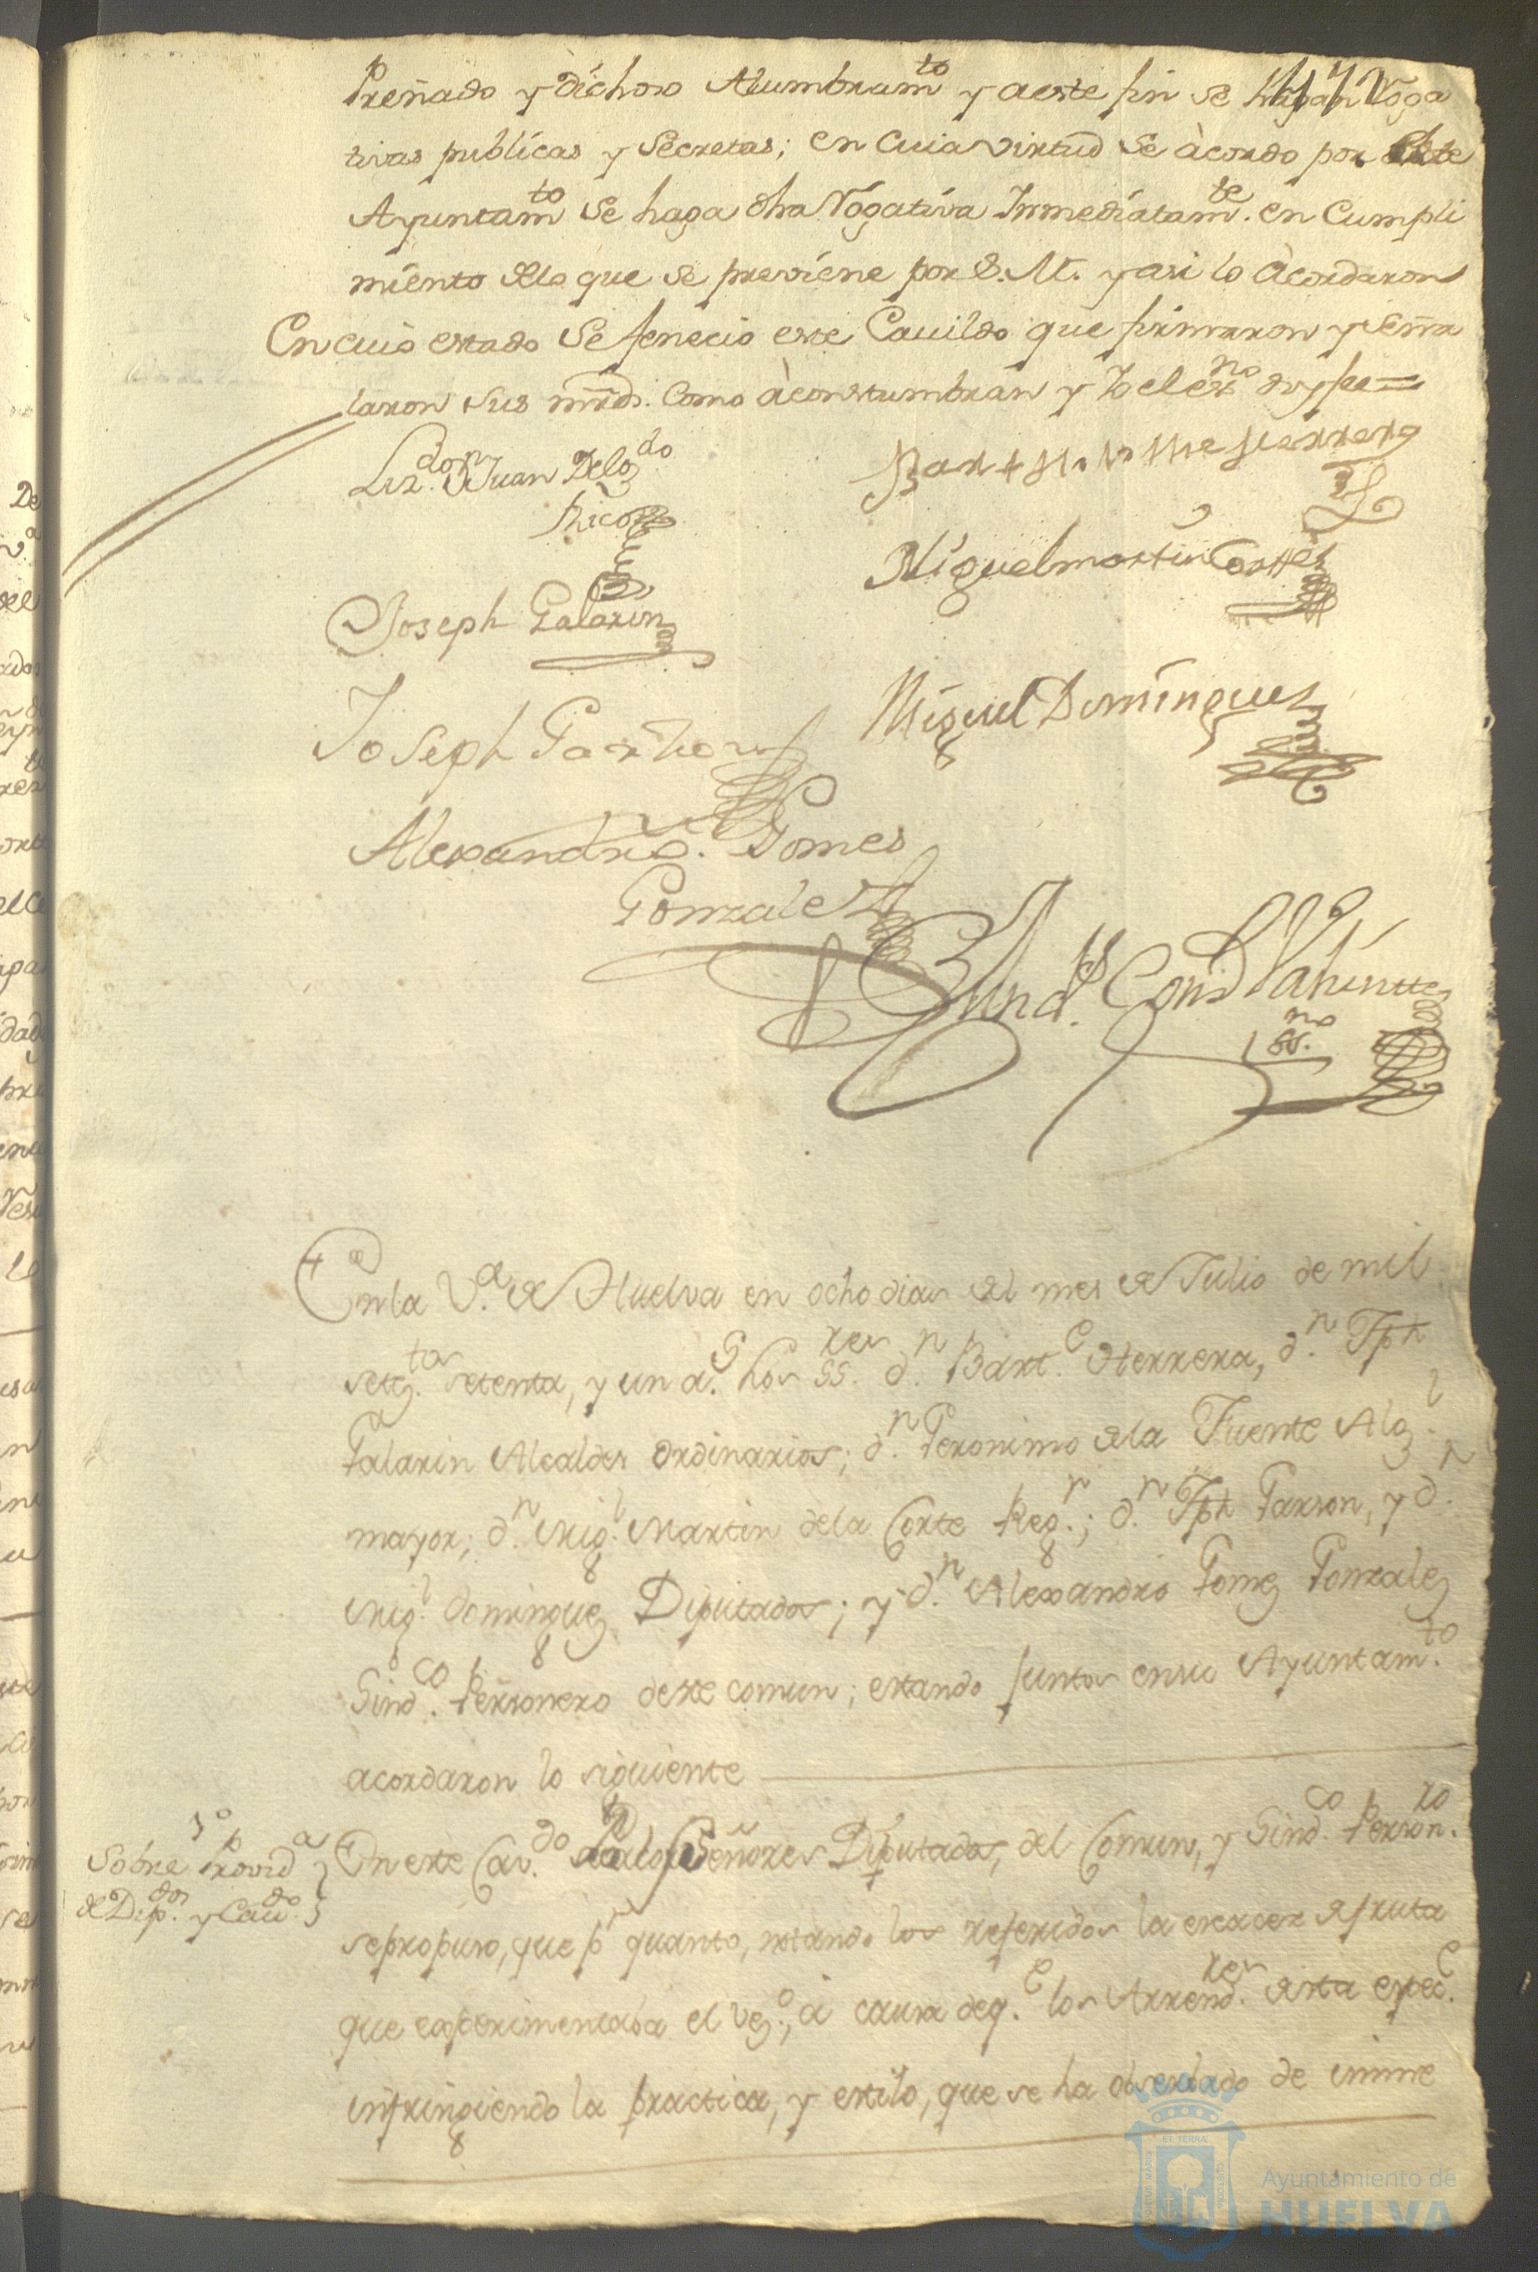 Preñado y dichoso Alumbram.to y aeste fin se hagan Roga
tivas publicas y Secretas; en Cuia virtud Se àcordo por este
Ayuntam.to Se haga dha Rogativa Inmediatam.te en Cumpli
miento delo que se previene por S. M. y asi lo Àcordaron
En cuio estado Se fenecio este Cavildo que firmaron y señа
laron sus mrds. Como àcostumbran y Yo el es.no doy fee=
Liz.do dn Juan Delg.do
Rico
Bartholome Herrera
Miguel martin Cortes
Joseph Galarin
Miguel Domingues
Joseph Garzon
Alexandro. Gomes
Gonzalez
es.no
En la V.a de Huelva en ocho dias del mes de Julio de mil
setez.tos setenta, y un a.s los SS.res d.n Bart.e Herrera, d.n Jph
Galarin Alcaldes ordinarios; d.n Geronimo dela Fuente Alg.l
mayor; d.n Mig.l Martin dela Corte Reg.r; d.n Jph Garzon, y d.n
Mig.l Dominguez Diputados; y d.n Alexandro Gomez Gonzalez
Sind.co Personero deste comun; estando juntos en su Ayuntam.to
acordaron lo siguiente
1o
Sobre Provid.a
de Dip.dos y Cav.do
En este Cav.do por los Señores Diputados, del Comun, y Sind.co Person.ro
se propuso, que p.r quanto, notando los referidos la escacez de fruta
que experimentaba el Vez.o, à causa de q.e los Arrend.res desta espec.e
infringiendo la practica, y estilo, que se ha observado de inme
Ayuntamiento de
HUELVA